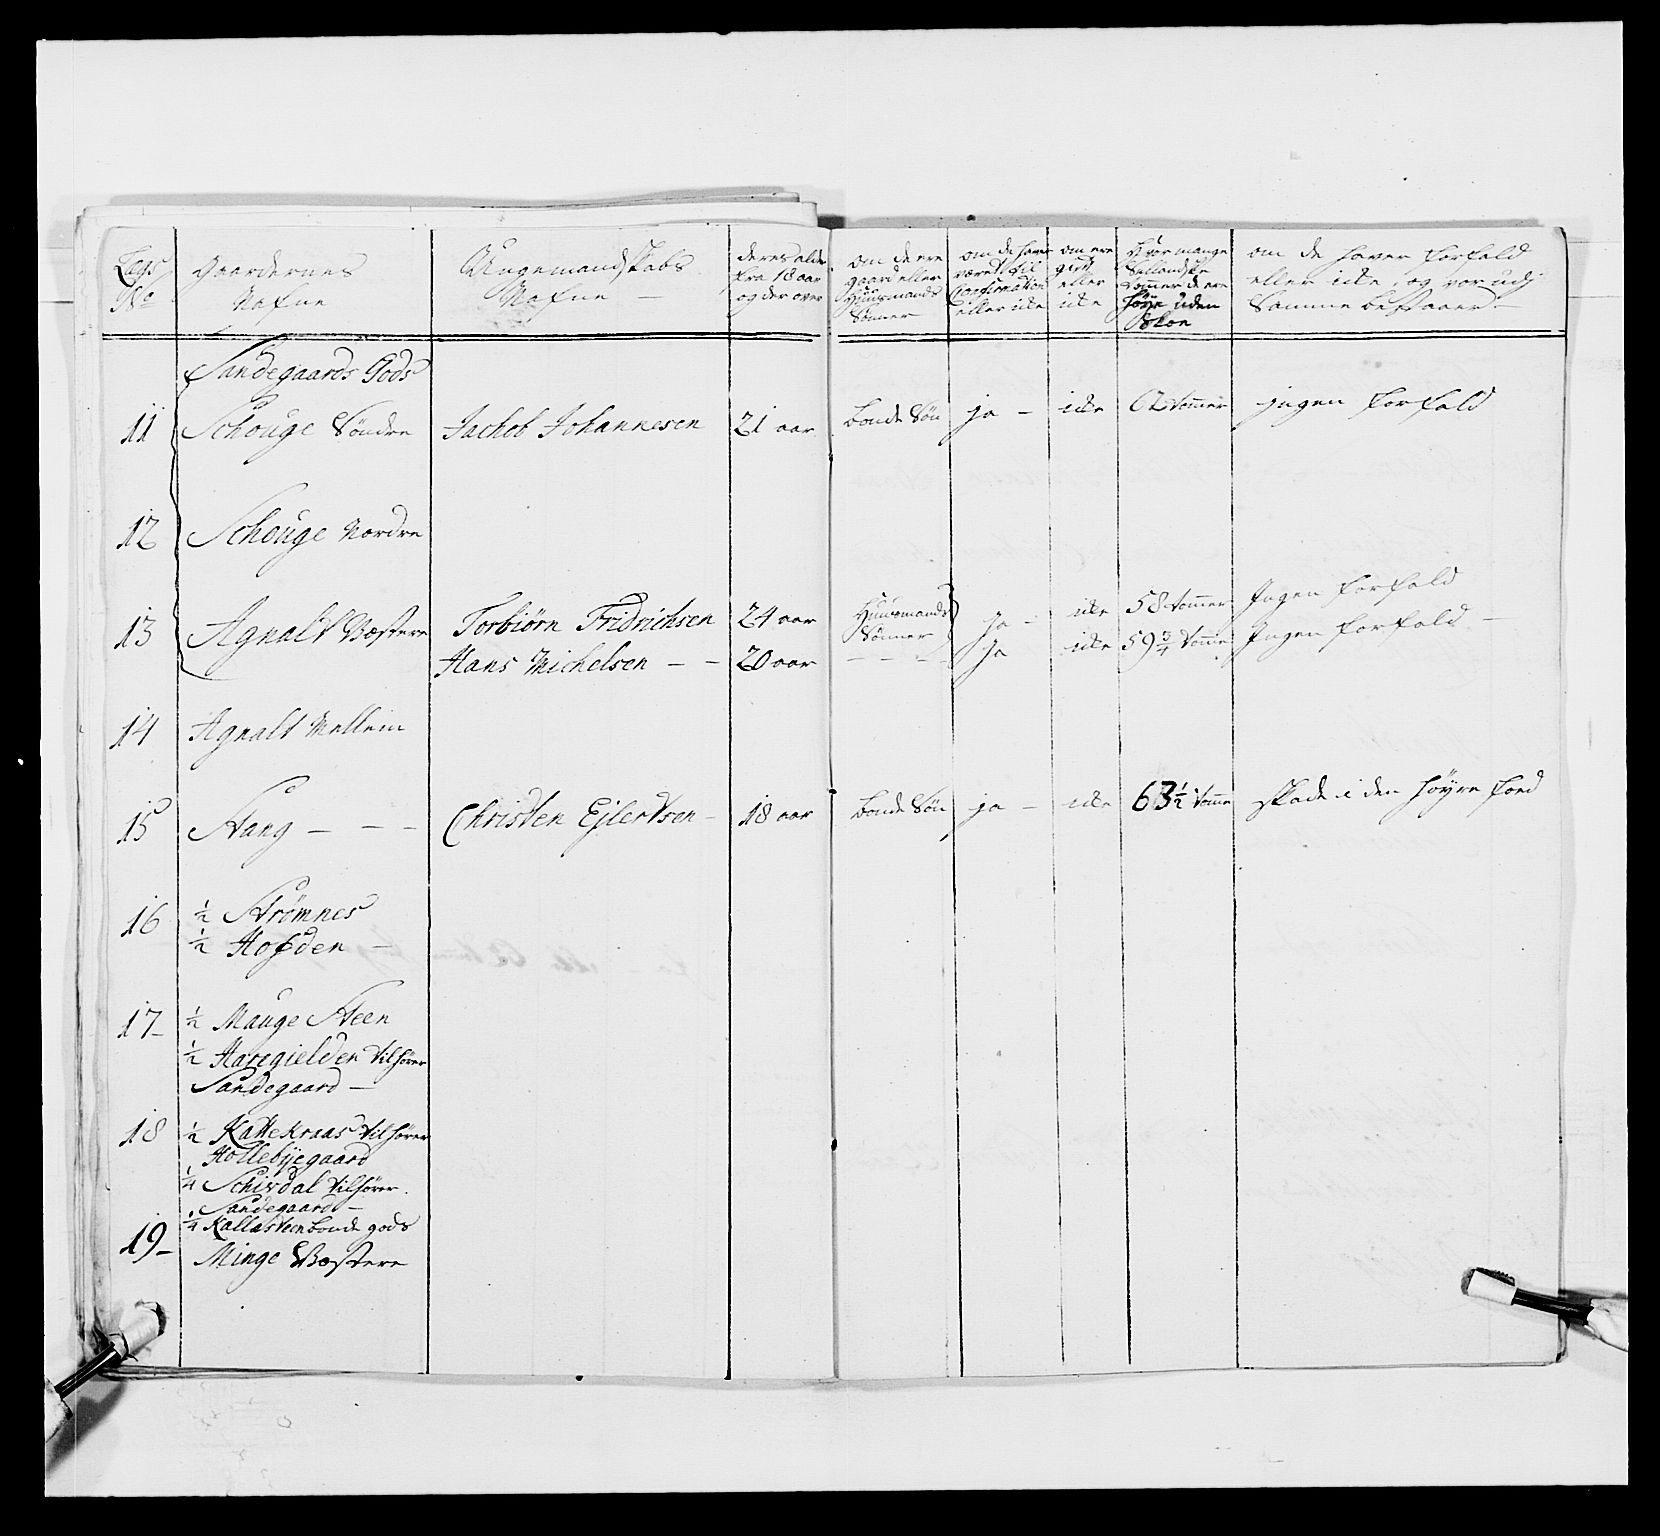 Lægs No
Gaardernes Nafne
Ungemandskabs Nafne —
deres alder fra 18 aar og der over
om de ere gaard eller Huusmands Sønner
om de have været til Confirmation eller icke
om ere givt eller icke
Hvor mange Siellandske Tommer de ere høye uden Skoe
om de haver forfald eller icke, og vorudj Samme bestaaer
Sandegaards Gods
11 Schouge Søndre Jachob Johannesen 21 aar bonde Søn ja — icke 62 tommer ingen forfald
12 Schouge Nordre
13 Agnalt Vestere Torbiørn Fridrichsen 24 aar Huusmands Sønner ja — icke 58 tommer Ingen forfald
Hans Michelsen — — 20 aar — — — ja icke 59 3/4 tomme Ingen forfald —
14 Agnalt Mellem
15 Stang — — — Christen Ejlertsen — 18 aar bonde Søn ja — icke 63 1/2 tomme skade i den høyre foed
16 1/2 Strømnes
1/2 Hofsden —
17 — 1/2 Mauge Steen
1/2 Haregielden tilhører
Sandegaard —
18 1/2 Kattekraas tilhører
Hollebÿegaard
1/4 Schivdal tilhører
Sandegaard —
1/4 Kallasteen bonde gods
19 — Minge Vestere